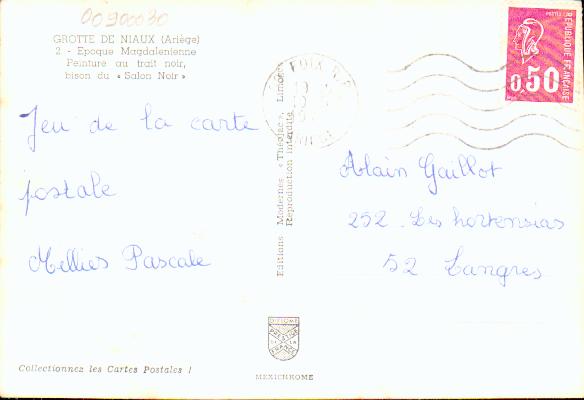 00900030
GROTTE DE NIAUX (Ariège)
2 - Epoque Magdalenienne
Peinture au trait noir,
bison du « Salon Noir »
Jeu de la carte
postale
Mellies Pascale
Collectionnez les Cartes Postales !
Editions Modernes « Théojac », Limoges
Reproduction interdite
DIPLOME
PRESTIGE
DE LA
FRANCE
MEXICHROME
FOIX
RÉPUBLIQUE FRANÇAISE
0,50
Alain Gaillot
252 Les hortensias
52 Langres